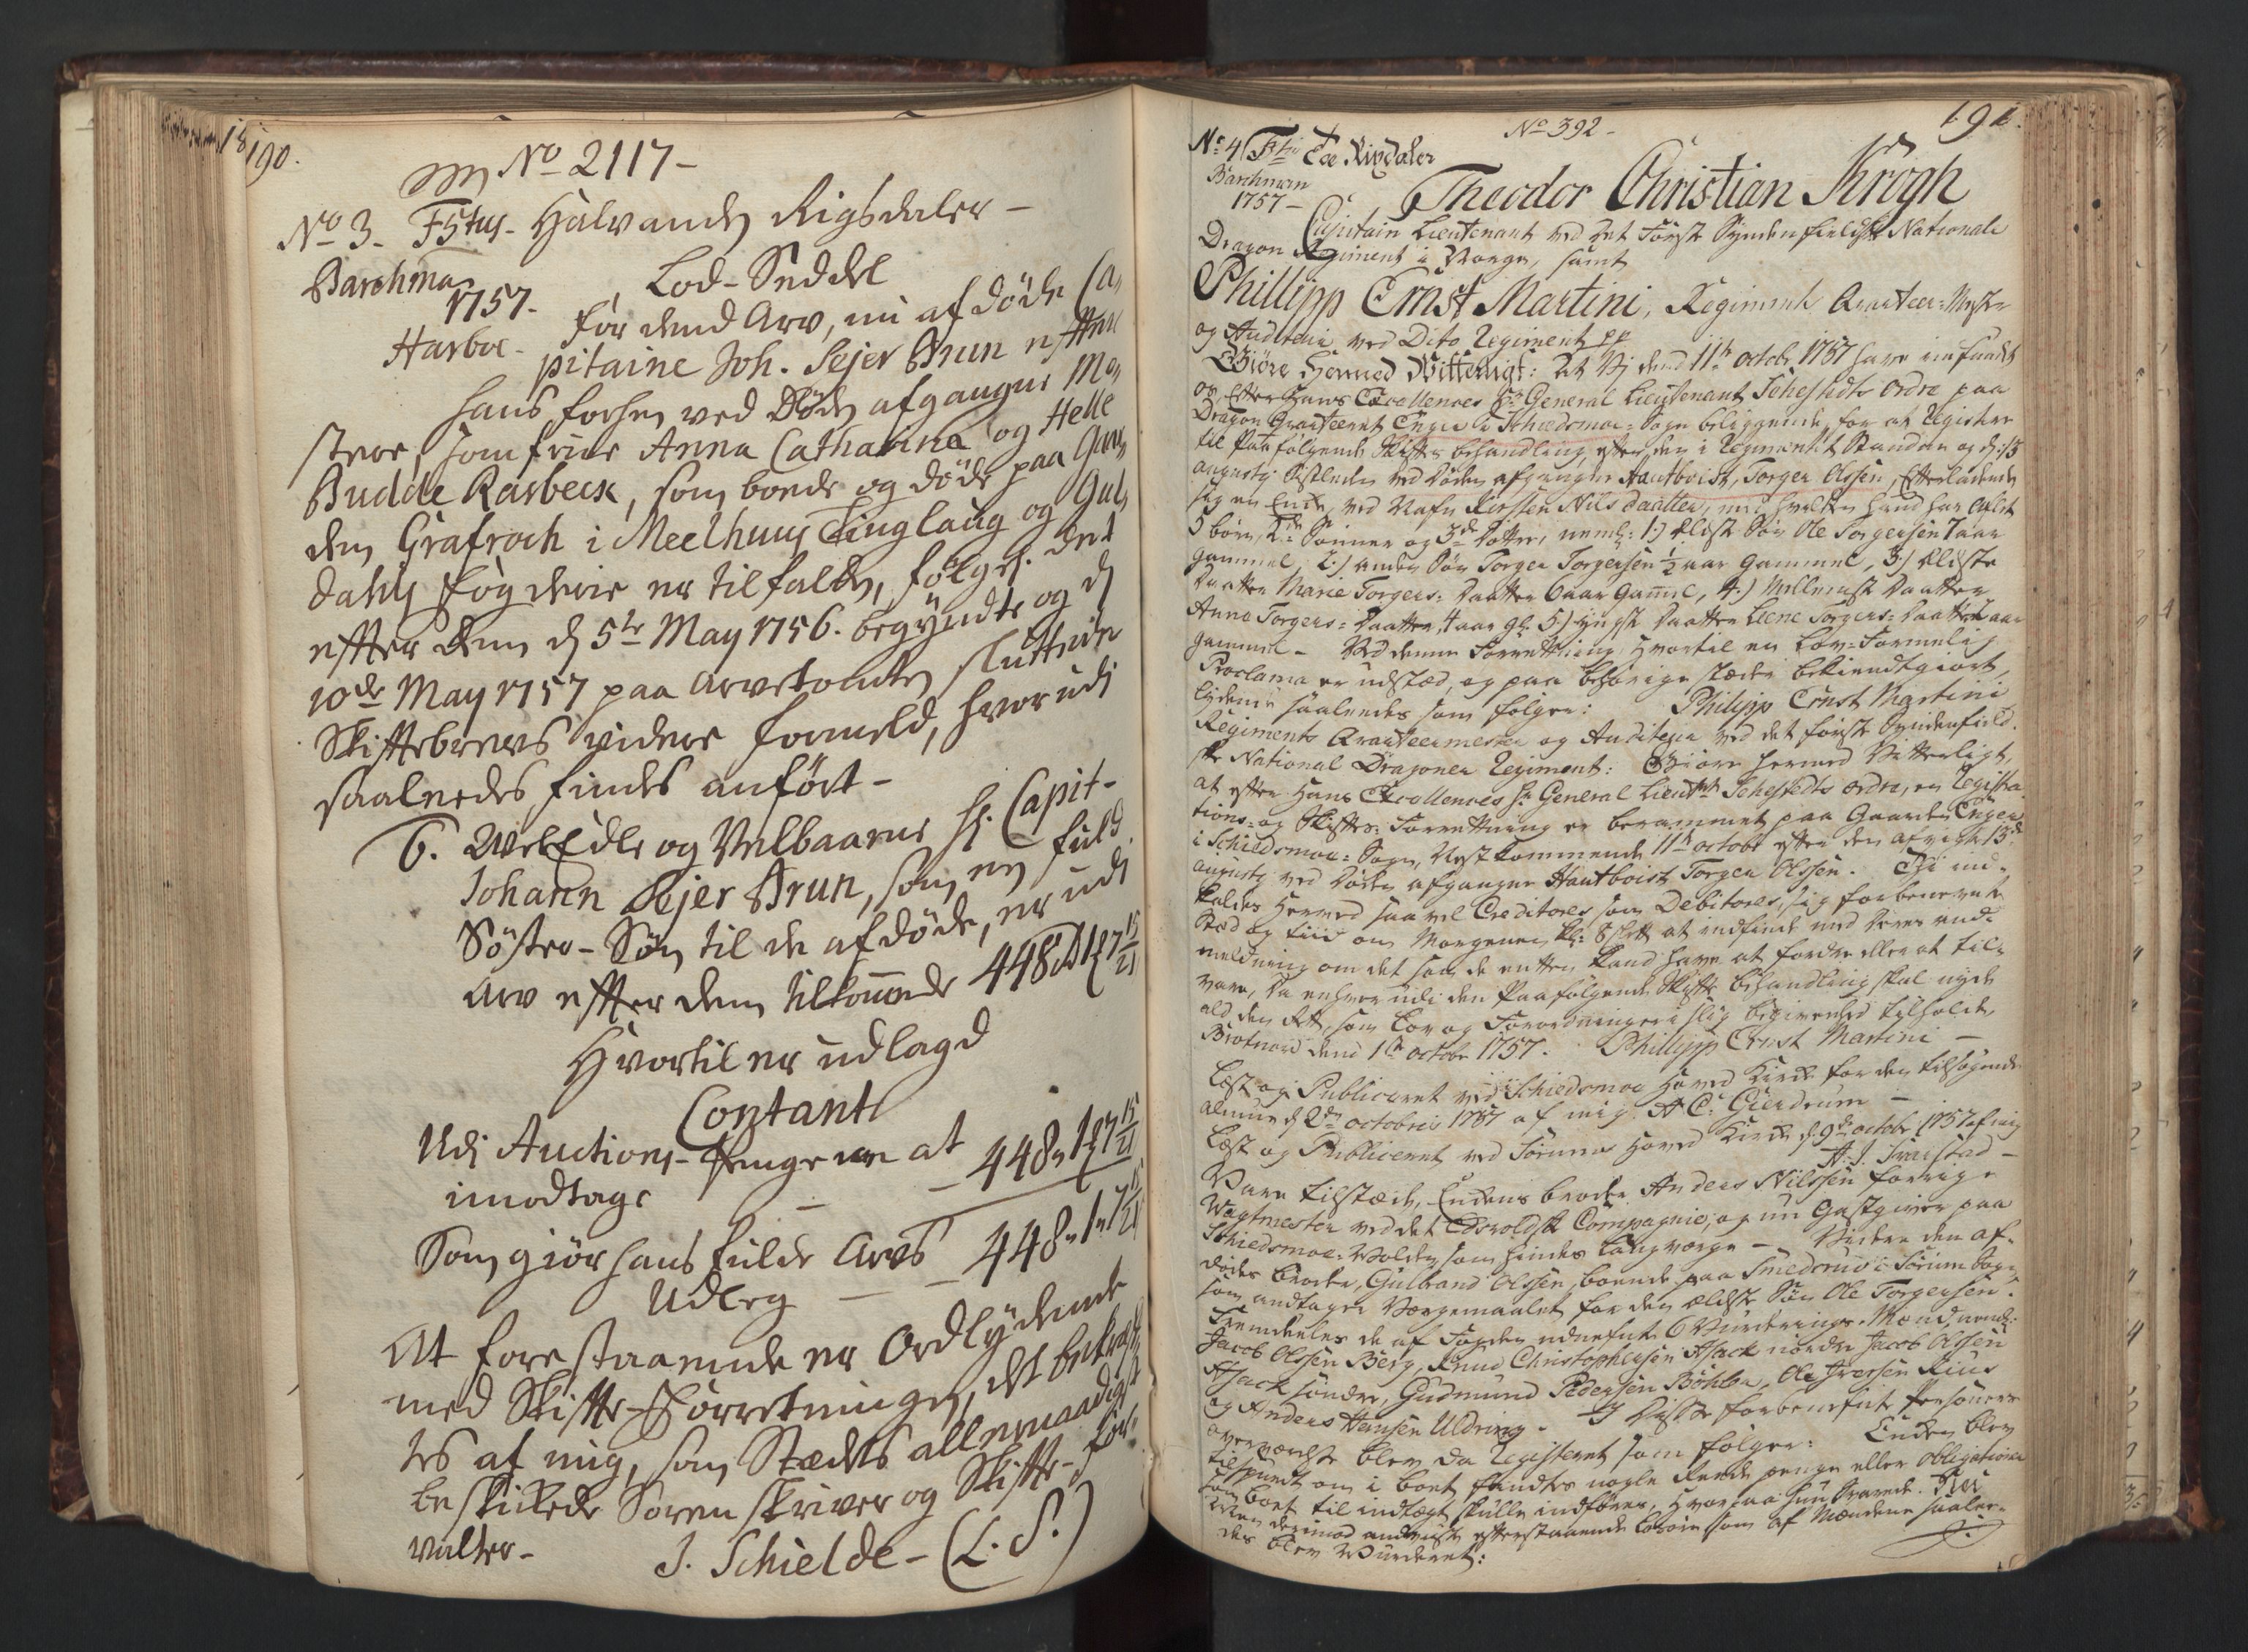 190.
No 2117-
No 3. F5tus. Halvanden Rigsdaler -
Barchman
1757.
Harboe.
Lod-Seddel
for dend Arv, nu afdøde Ca-
pitaine Joh. Sejer Brun efter
hans forhen ved Døden afgangne Mo-
stere, Jomfruer Anna Catharina og Helle
Budde Rasbeck, som boede og døde paa Gaar-
den Grafroch i Meelhuus Tinglaug og Gul-
dahls fogderie er tilfalden, følgel. det
effter dem d 5te May 1756. begyndte og d
10de May 1757 paa Arvetomten sluttede
Skifftebrevs videre formeld, hvorudi
saaledes findes anført-
6. WelEdle og Velbaarne Hr. Capit-
Johann Sejer Brun, som en fuld
Søster-Søn til de afdøde, er udi
Arv effter dem tilkommende 448 rd 1 7 15/21
Hvortil er udlagd
Contant
Udi Auctions-Pengene at
imodtage - 448 " 1 7 15/21
Som giør hans fulde Arvs
Udleg - 448 " 1 " 7 15/21
At forestaaende er Ordlydende
med Skiffte-Forretningen, det bekræff-
tes af mig, som Stædets allernaadigst
beskikede Sorenskriver og Skiffte-for-
valter-
J. Schielde - (L. S.)
191.
No 392-
No 4 Fire Rixdaler
Barchman
1757-
Theodor Christian Krogh
Capitain Lieutenant ved det Første Syndenfieldske Nationale
Dragon Regiment i Norge, samt
Phillipp Ernst Martini, Regiments Qvarteer-Mester
og Auditeur ved Dito Regiment pp
Giøre Hermed Vitterligt: At Vj dend 11te octobr 1757 have indfundet
os efter Hans Excellences Hr General Lieutenant Schestedts Ordre paa
Dragon Qvarteret Enger i Schiedsmoe-Sogn beliggende, for at Registere
til Paafølgende Skiftes behandling, efter den i Regimentet Standen og d: 13
augusty Sistleden ved Døden afgangne Hautboist, Torger Olssen, Efterladende
sig en Enke, ved Nafn Kirsten Nilsdaatter, med hvilken hand har Aflet
5 børn, 2de Sønner og 3de Døttre, neml: 1.) Eldste Søn Ole Torgersen 7 aar
gammel, 2.) anden Søn Torger Torgersen 1/2 aar Gammel, 3.) Eldste
Daatter Marie Torgers-Daatter 6 aar Gammel, 4.) Mellemste Daatter
Anne Torgers-Daatter, 4 aar gl. 5.) Yngste Daatter Lene Torgers-Daatter 2 aar
gammel- Ved denne Forrettning, Hvortil en Lov-Formelig
Proclama er udstæd, og paa behørige stæder bekiendtgiort,
lydende saaledes som følger: Philipp Ernst Martini
Regiments Qvarteermester og Auditeur ved det første Syndenfield-
ske National Dragoner Regiment: Giøre hermed Vitterligt,
at efter Hans Excellences Hr General Lieutnt Schestedts ordre, en Registra-
tions- og Skiftes-Forrettning er berammet paa Gaarden Enger
i Schiedsmoe-Sogn, Næstkommende 11te octobr efter den afvigte 13de
augusty ved Døden afgangne Hautboist Torger Olssen. Thi ind-
kaldes Hermed saavel Creditores som Debitores, sig forbenevnte
Stæd og Tiid om Morgenen Kl: 8 slett at indfinde med deres an-
meldning om det som de enten kand have at fordre eller at til-
svare, da enhver udi den Paafølgende Skifte behandling skal nyde
ald den Ret, som Lov og Forordninger i slig begivenhed tilholder,
Brotnord dend 1te octobr 1757. Phillipp Ernst Martini -
Læst og Publiceret ved Schiedsmoe Hoved Kirke for den tilsøgende
almue d 2den octobris 1757 af mig. A C: Gierdrum -
Læst og Publiceret ved Sørums Hoved Kirke d. 9de octobr 1757 af mig
A. J. Fraustad -
Vare tilstæde, Enkens broder Anders Nilssen forrige
Wagtmester ved det Edsvoldske Compagnie, og nu Gastgiver paa
Schiedsmoe-Volden, som hindes Laugværge - Videre den af-
dødes broder, Gulbrand Olssen, boende paa Smedsrud i Sørum Sogn
som andtager Værgemaalet for den ældste Søn Ole Torgersen.
Fremdeeles de af Fogden udnefnte 6 Vurderings-Mænd, neml:
Jacob Olssen Berg, Knud Christophersen Asack nordre, Jacob Olssen
Asack søndre, Gudmund Pedersen Böhler, Ole Iversen Riis
og Anders Hansen Uldring. I disse forbenefnte Personers
overværelse blev da Registeret som følger: Enken blev
tilspurdt om i boet fandtes nogle rede penge eller obligationer
som boet til indtægt skulle indføres, Hvortil hun Svarede: Nei
Men derimod anviste efterstaaende Løsøre som af Mændene saale-
des blev Vurderet: